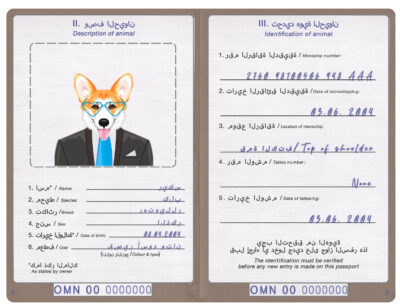 II. وصف الحيوان
Description of animal
1. اسم* / Name:
2. محيط / Species: كلب
3. تكاثر / Breed:
4. جنس / Sex: الذكر
5. تاريخ الولادة* / Date of birth
6. معطف / Coat قصير أسود وتان
(Colour & type)
*كما ذكر المالك
As stated by owner
OMN 00 0000000
III. تحديد هوية الحيوان
Identification of animal
1. رقم الرقاقة الدقيقة / Microchip number:
AAA
2. تاريخ الرقائق الدقيقة / Date of microchipping:
03.06.2009
3. موقع الرقاقة / Location of microchip:
قمة الكتف/ Top of shoulder
4. رقم الوشم / Tattoo number:
None
5. تاريخ الوشم / Date of tattooing:
03.06.2009
يجب التحقق من الهوية
قبل إجراء أي دخول جديد على جواز السفر هذا
The identification must be verified
before any new entry is made on this passport
OMN 00 0000000